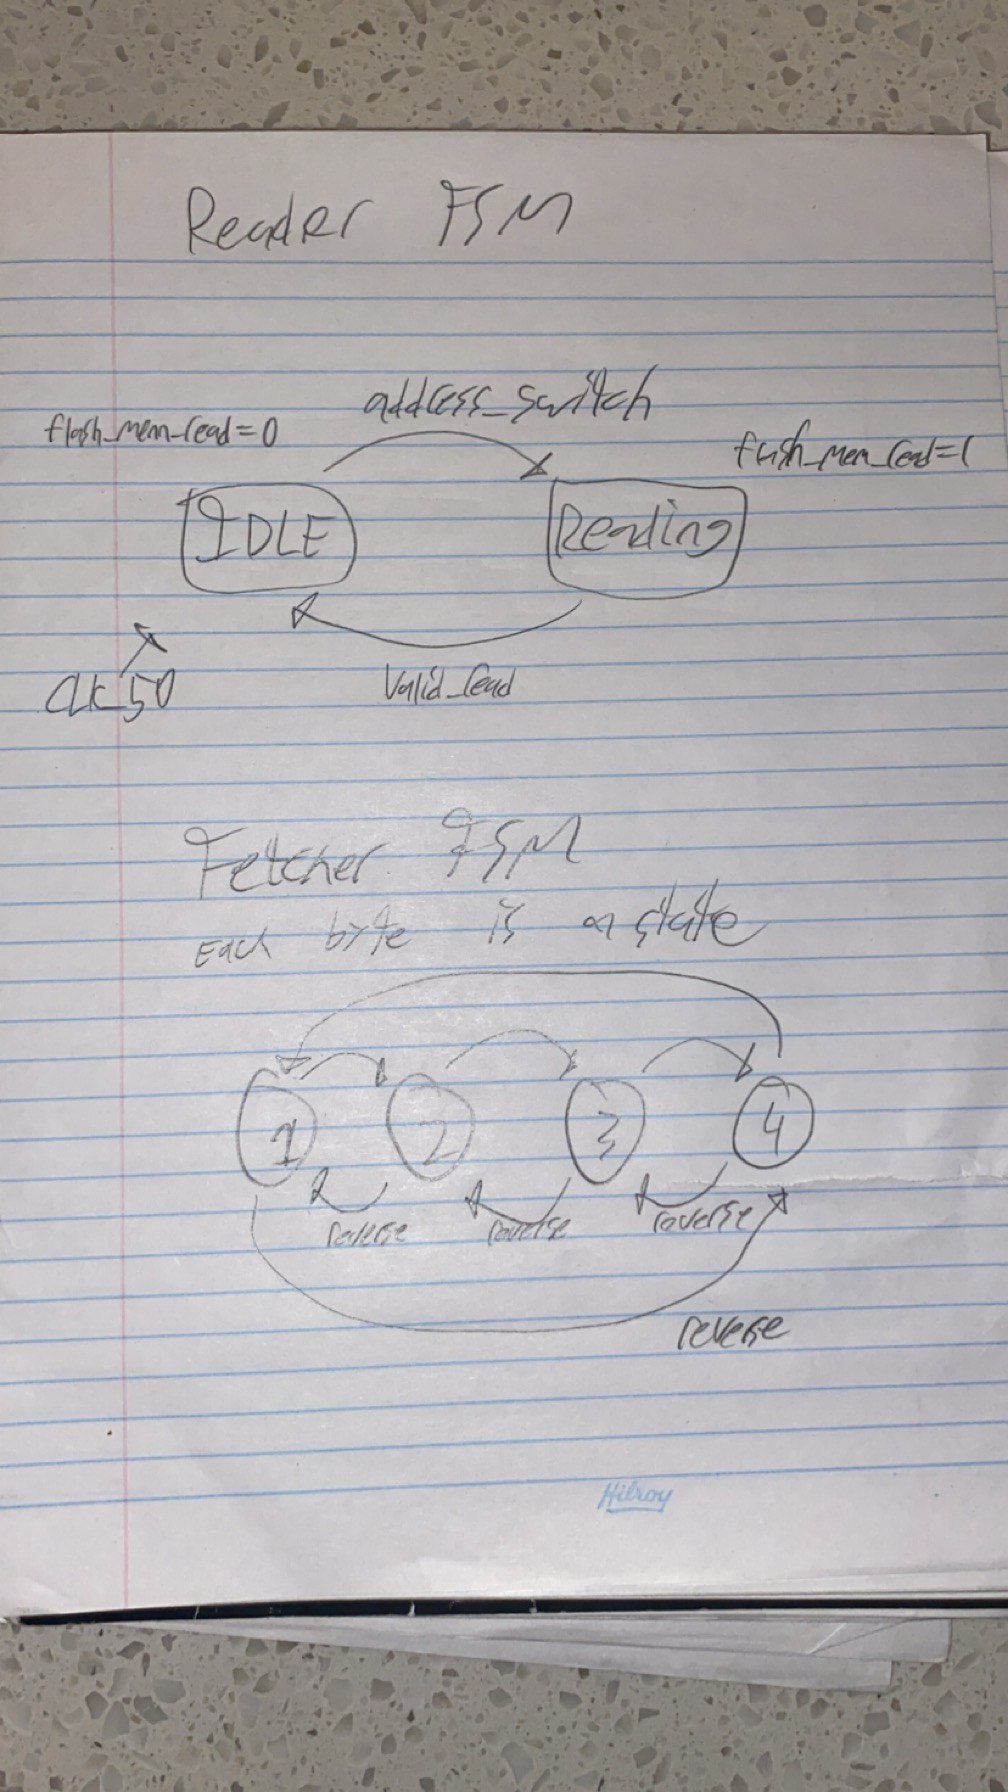 Reader FSM
address_switch
flash_mem_read=0
flash_mem_read=1
IDLE
Reading
CLK_50
Valid_read
Fetcher FSM
Each byte is a state
1 2 3 4
reverse reverse reverse
reverse
Hilroy